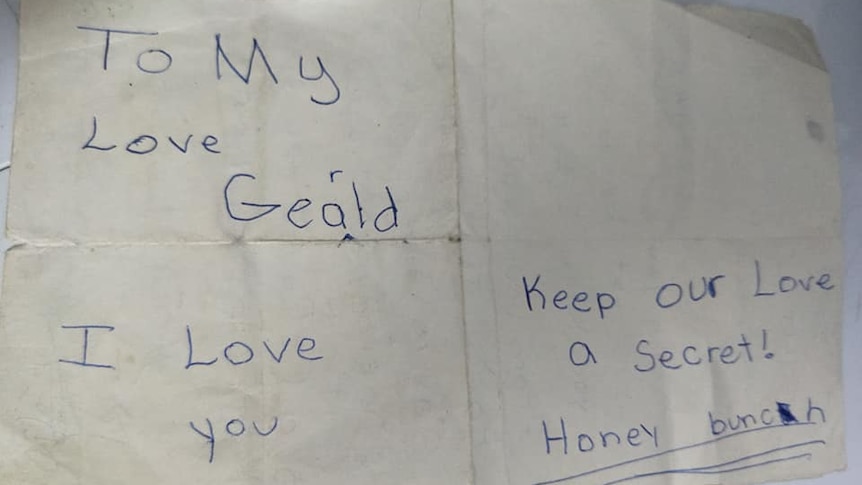 To My
Love
Gerald
I Love
you
Keep our Love
a Secret!
Honey bunch